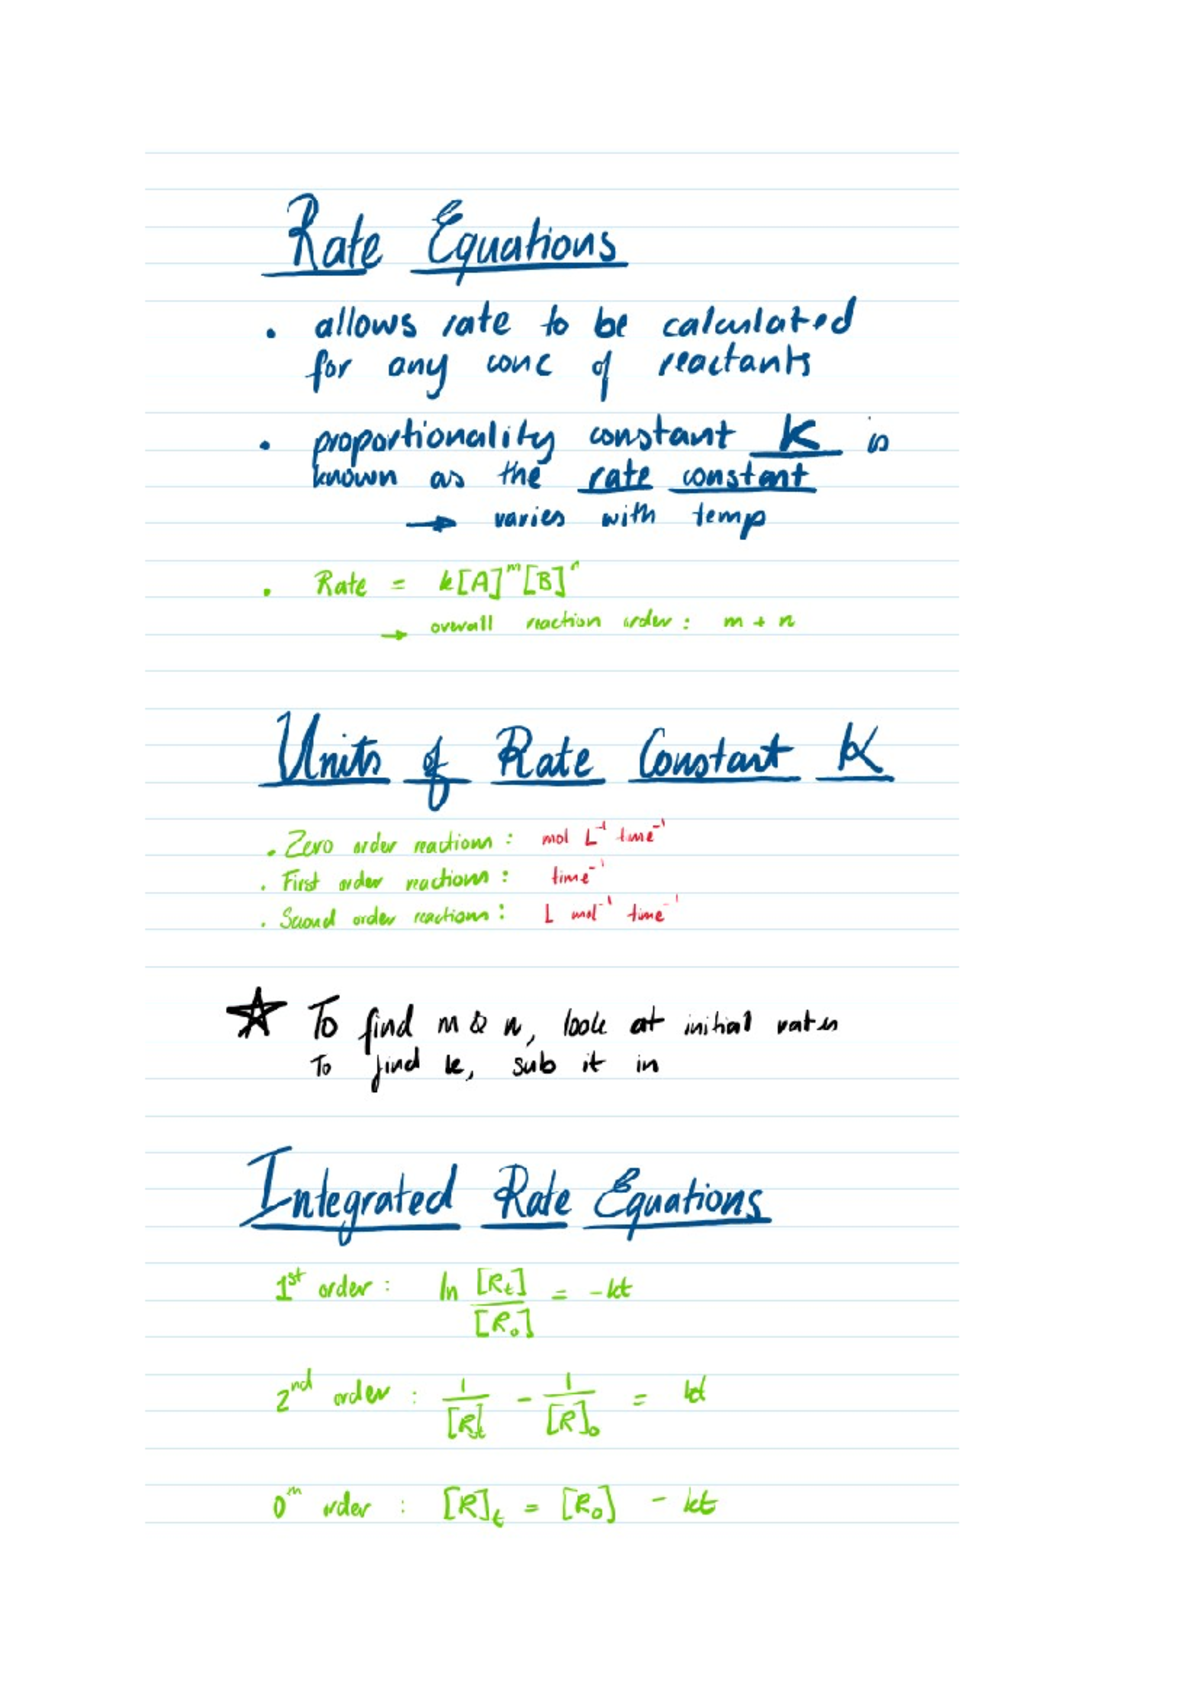 Rate Equations
• allows rate to be calculated
for any conc of reactants
• proportionality constant K is
known as the rate constant
→ varies with temp
• Rate = k[A]^m[B]^n
→ overall reaction order: m + n
Units of Rate Constant K
• Zero order reactions: mol L⁻¹ time⁻¹
• First order reactions: time⁻¹
• Second order reactions: L mol⁻¹ time⁻¹
☆ To find m & n, look at initial rates
To find k, sub it in
Integrated Rate Equations
1st order: ln [Rt]/[R₀] = -kt
2nd order: 1/[R]t - 1/[R]₀ = kt
0th order: [R]t = [R₀] - kt